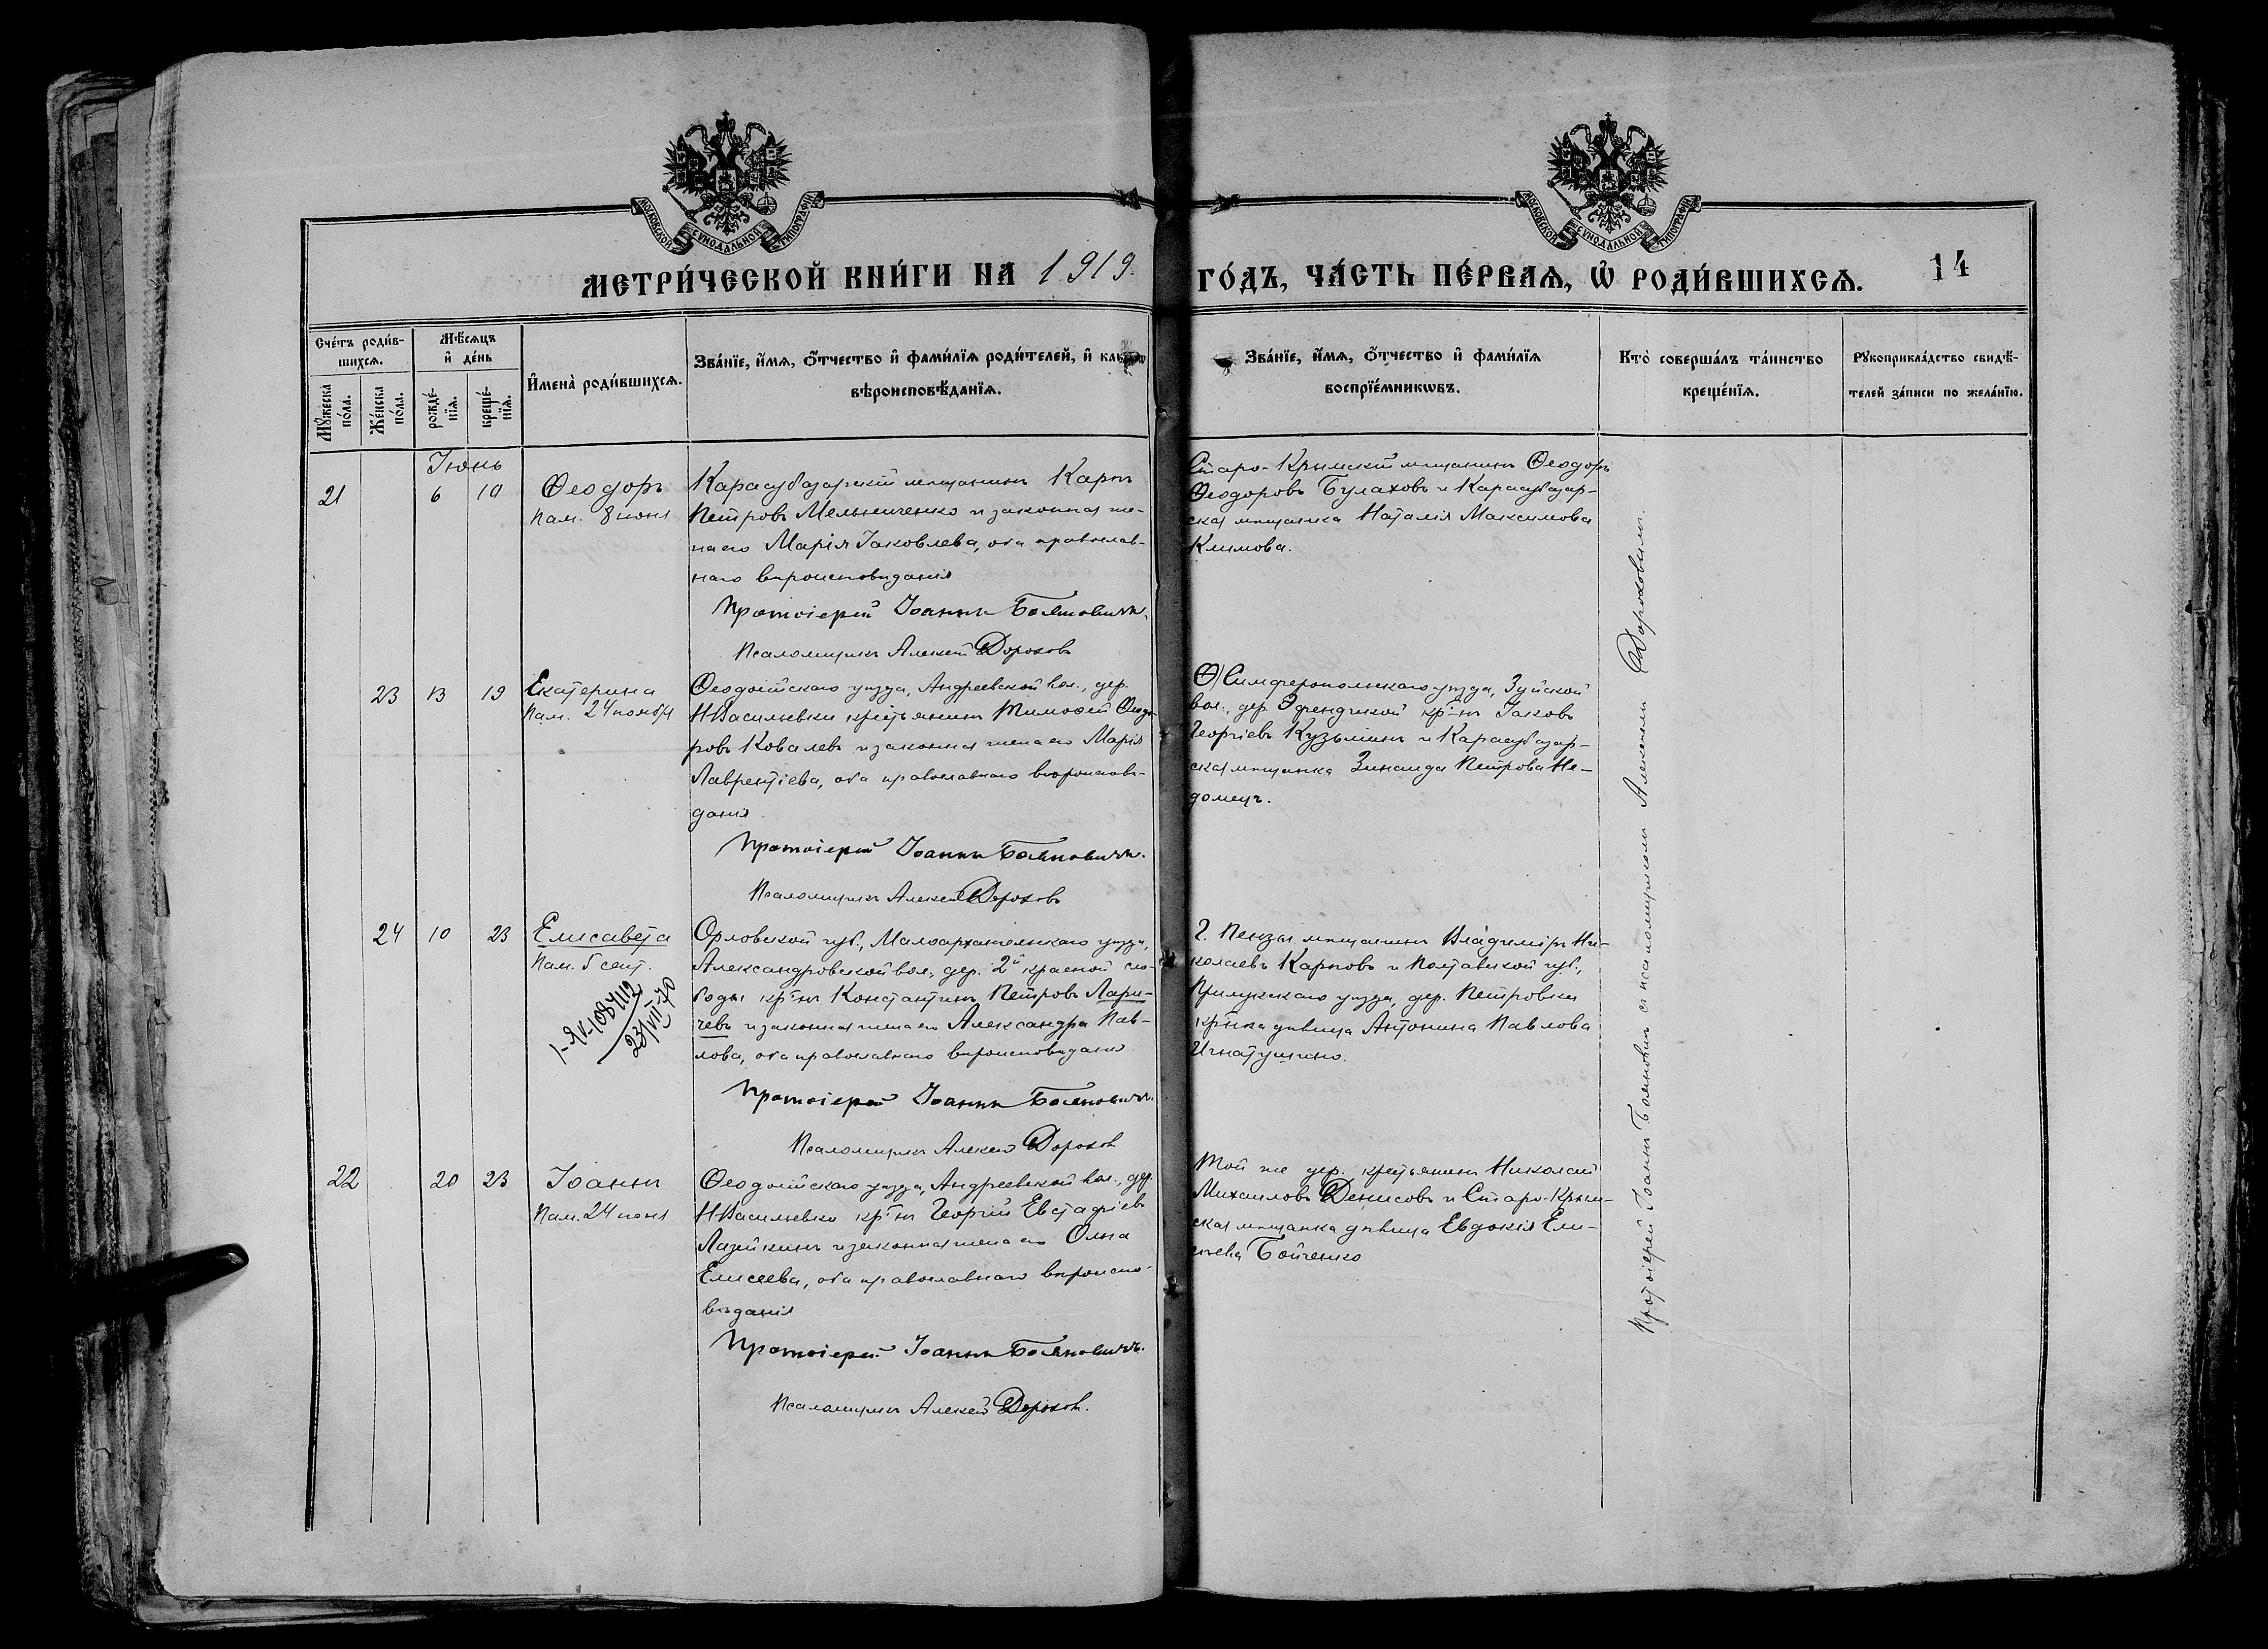 МОСКОВСКОЙ СУНОДАЛЬНОЙ ТИПОГРАФІИ
МОСКОВСКОЙ СУНОДАЛЬНОЙ ТИПОГРАФІИ
МЕТРИ́ЧЕСКОЙ КНИ́ГИ НА 1919.
ГО́ДЪ, ЧА́СТЬ ПЕ́РВАѦ, Ѡ҆ РОДИ́ВШИХСѦ.
14
Сче́тъ роди́в-
шихсѧ.
Мꙋ́жеска по́ла.
Же́нска по́ла.
Мѣ́сѧцъ
и҆ де́нь
рожде́-
нїѧ.
креще́-
нїѧ.
И҆мена̀ роди́вшихсѧ.
Зва́нїе, и҆́мѧ, ѻ҆́тчество и҆ фами́лїѧ роди́телей, и҆
вѣроисповѣ́данїѧ.
Зва́нїе, и҆́мѧ, ѻ҆́тчество и҆ фами́лїѧ
воспрїе́мникѡвъ.
Кто̀ соверша́лъ та́инство
креще́нїѧ.
Рꙋкоприкла́дство свидѣ́-
телей за́писи по жела́нїю.
Іюнь
21 6 10 Ѳеодоръ
Пам. 8 июня
Карасубазарскій мѣщанинъ Карпъ
Петровъ Мельниченко и законная же-
на его Марія Іаковлева, оба православ-
наго вѣроисповѣданія
Протоіерей Іоаннъ Бояновичъ.
Псаломщикъ Алексей Дороховъ
Старо-Крымскій мѣщанинъ Ѳеодоръ
Ѳеодоровъ Булаховъ и Карасубазар-
ская мѣщанка Наталія Максимова
Климова.
23 13 19 Екатерина
Пам. 24 ноября
Ѳеодосійскаго уѣзда, Андреевской вол., дер.
Н-Васильевки крестьянинъ Тимоѳей Ѳеодо-
ровъ Ковалевъ и законная жена его Марія
Лаврентіева, оба православнаго вѣроисповѣ-
данія
Протоіерей Іоаннъ Бояновичъ.
Псаломщикъ Алексей Дороховъ
Симферопольскаго уѣзда, Зуйской
вол., дер. Эфендикой кр-нъ Іаковъ
Георгіевъ Кузьминъ и Карасубазар-
ская мѣщанка Зинаида Петрова Не-
домецъ.
24 10 23 Елисавета
Пам. 5 сент.
23/VII-70
Орловской губ., Малоархангельскаго уѣзда,
Александровской вол., дер. 2й красной сло-
боды кр-нъ Константинъ Петровъ Лари-
чевъ и законная жена его Александра Пав-
лова, оба православнаго вѣроисповѣданія
Протоіерей Іоаннъ Бояновичъ.
Псаломщикъ Алексей Дорохов
Г. Пензы мѣщанинъ Владиміръ Ни-
колаевъ Карповъ и Полтавской губ.,
Прилукскаго уѣзда, дер. Петровки
кр-нка дѣвица Антонина Павлова
22 20 23 Іоаннъ
Пам. 24 июня
Ѳеодосійскаго уѣзда, Андреевской вол., дер.
Н-Васильевки кр-нъ Георгій Евстафіевъ
Лазейкинъ и законная жена его Ольга
Елисеева, оба православнаго вѣроиспо-
вѣданія
Протоіерей Іоаннъ Бояновичъ.
Псаломщикъ Алексей Дорохов.
Той же дер. крестьянинъ Николай
Михаиловъ Денисовъ и Старо-Крым-
ская мѣщанка дѣвица Евдокія Ели-
сеева Бойченко
Протоіерей Іоаннъ Бояновичъ съ псаломщикомъ Алексеемъ Дороховымъ.